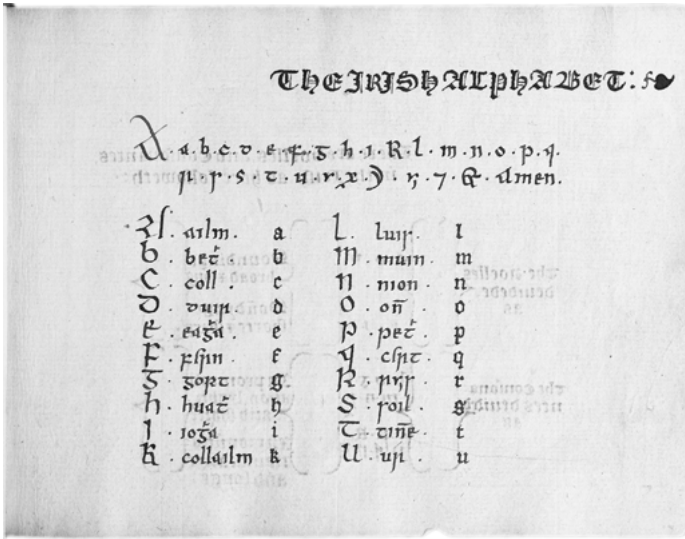 THE IRISH ALPHABET:
A a.b.c.d.e.f.g.h.i.k.l.m.n.o.p.q.
r.s.t.u.x. amen.
A. ailm. a L. luis. l
b. bet b M. muin m
C. coll. c N. nion n
D. duir d O. oñ o
e. eaga. e P. pet p
F. fearn. f q. q
g. gort g. R. r
h. huat h S. soil. s
I. ioga i T. tiñe t
K. collailm k U. ur u